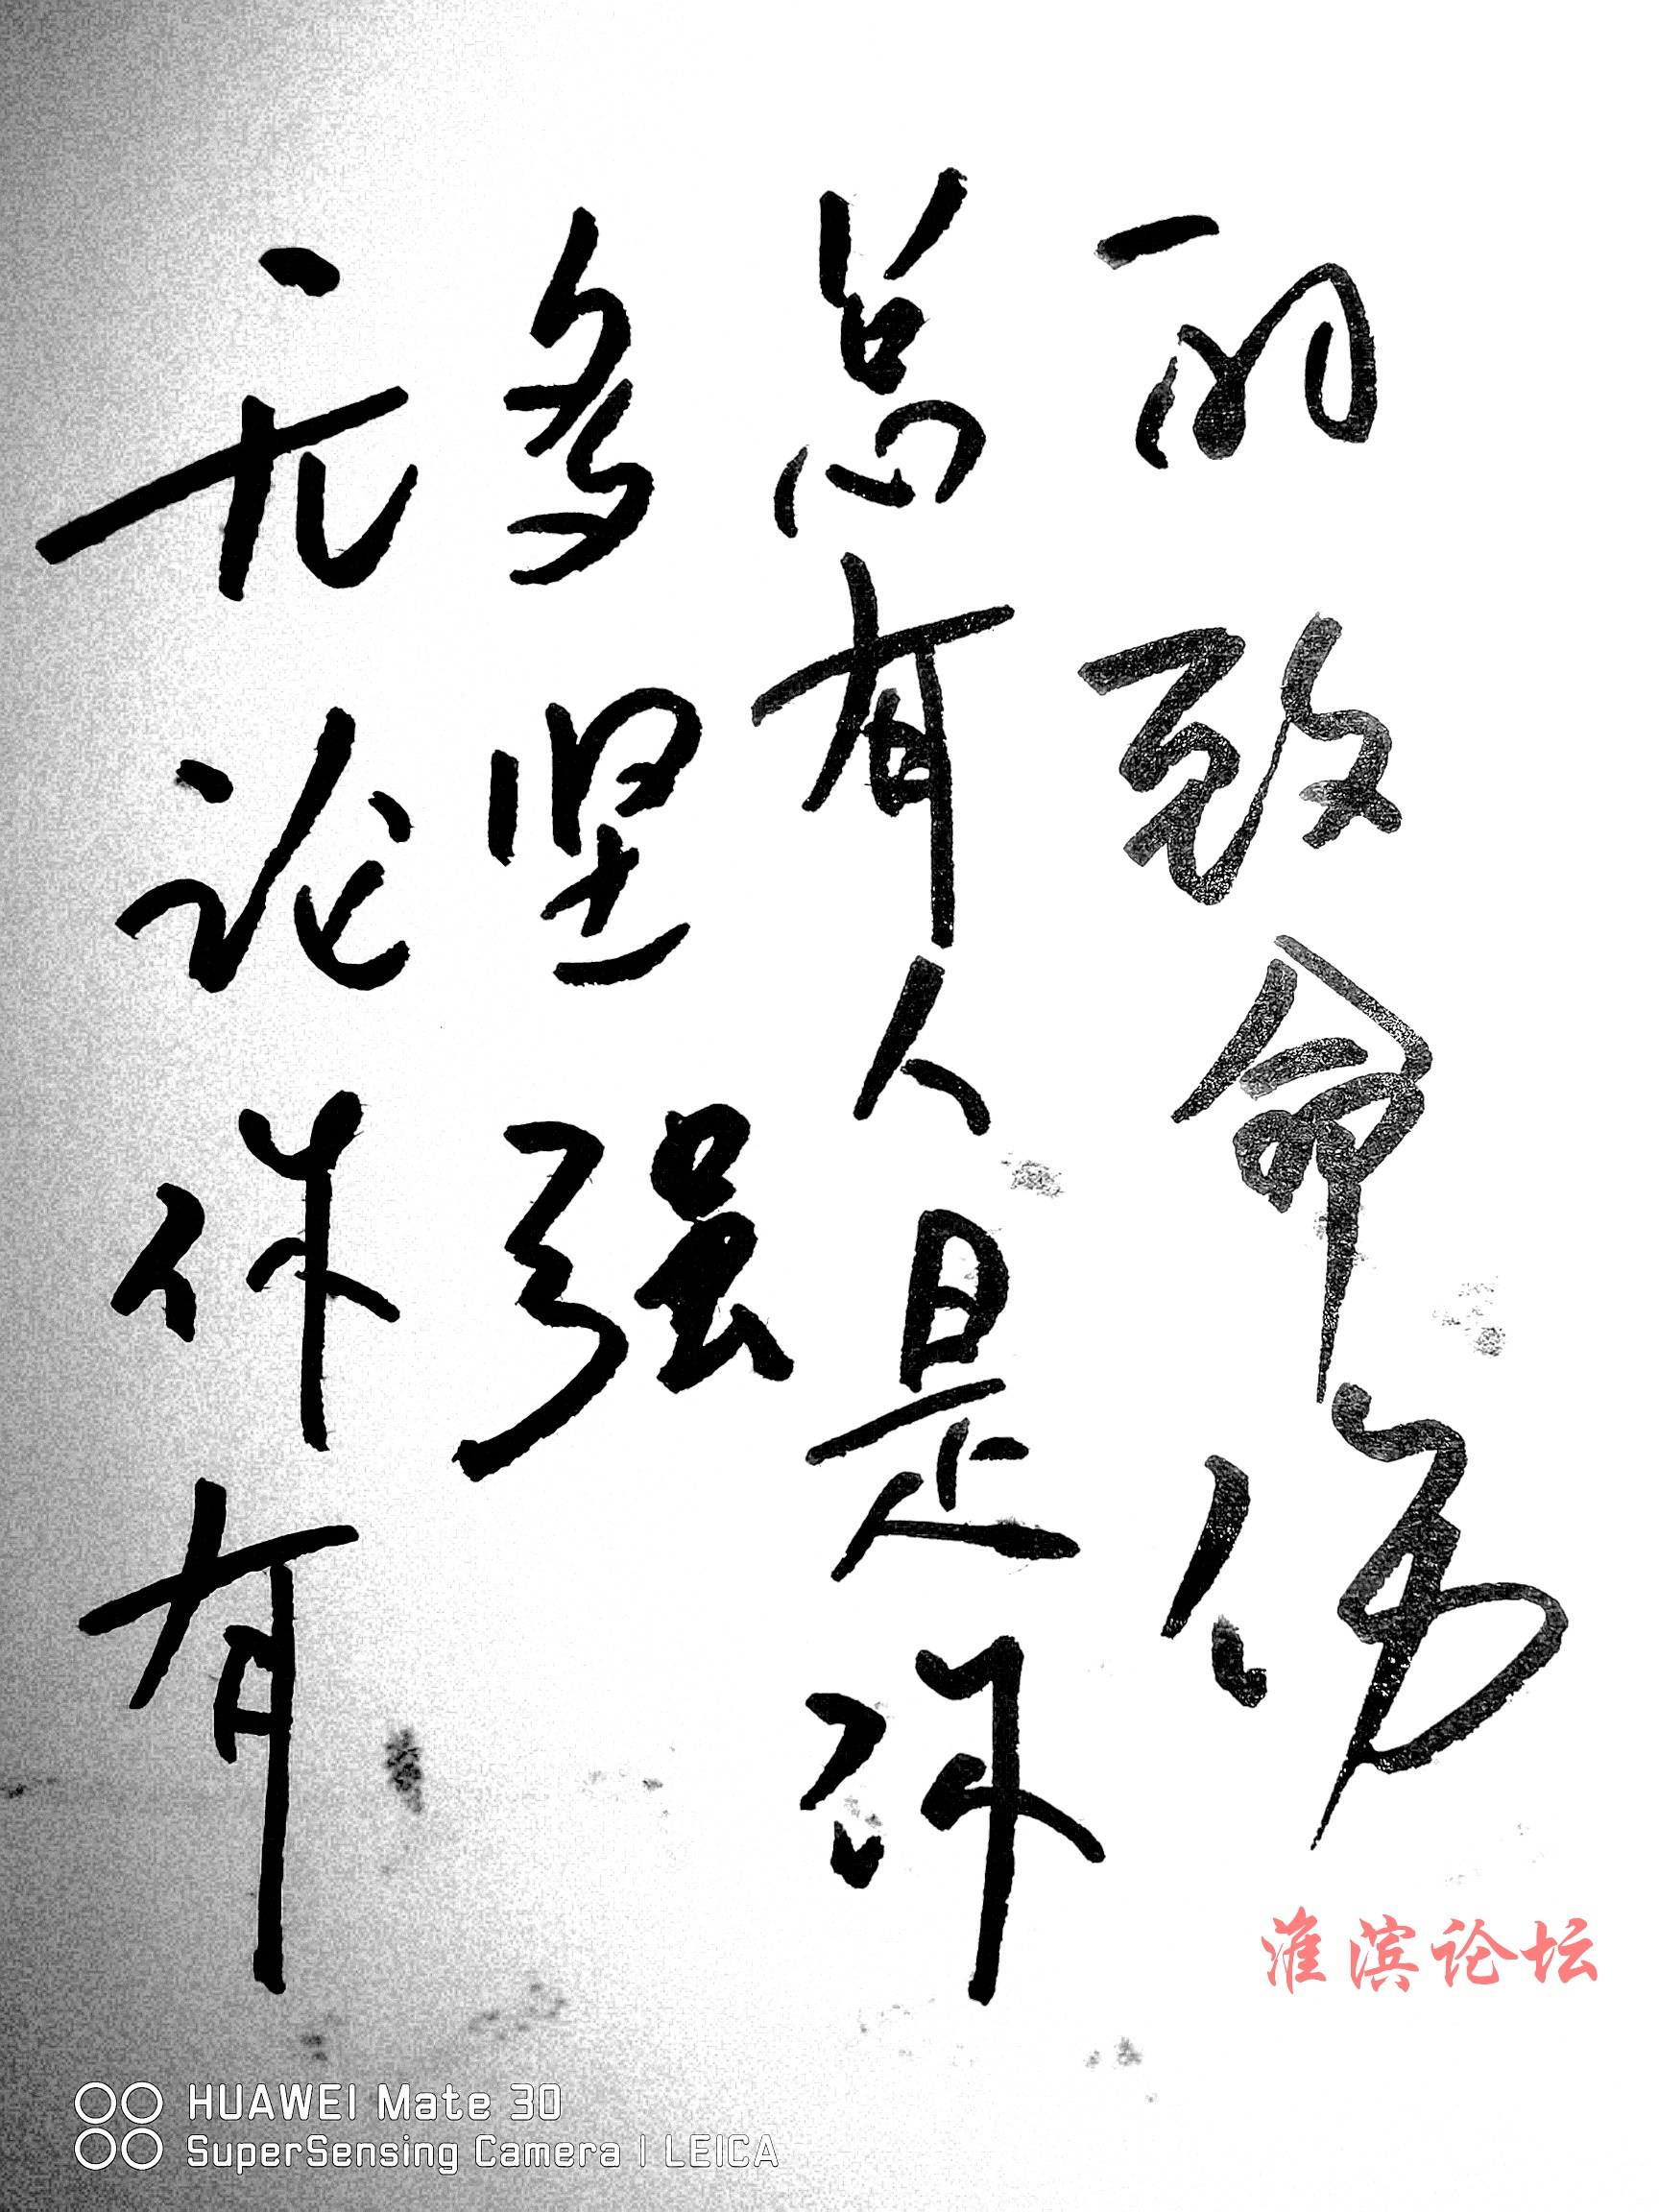 无论你有
多坚强
总有人是你
的致命伤
淮滨论坛
HUAWEI Mate 30
SuperSensing Camera | LEICA